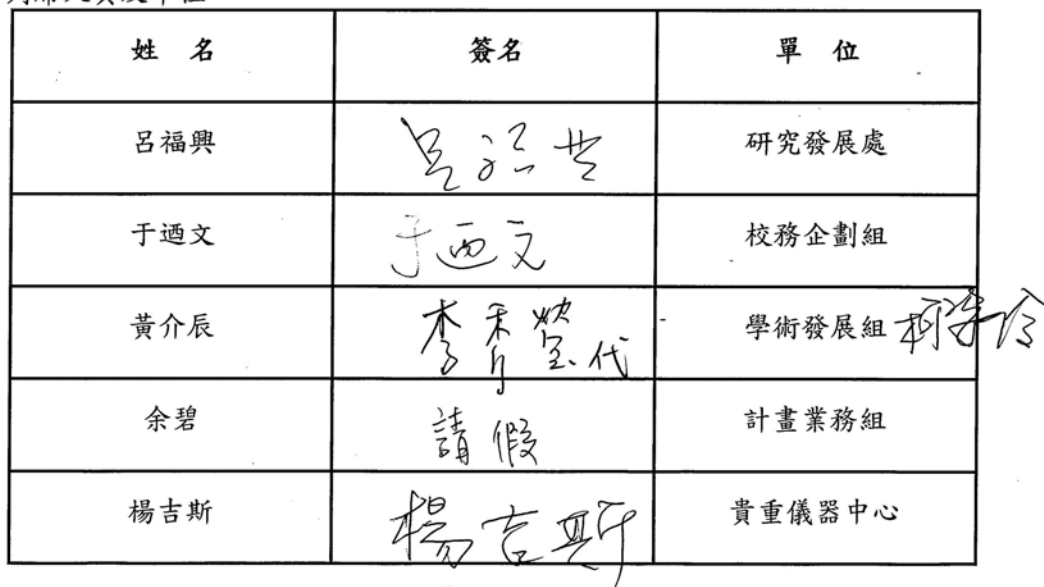 姓 名 簽名 單 位
呂福興 呂福興 研究發展處
于迺文 于迺文 校務企劃組
黃介辰 代 學術發展組
余碧 請假 計畫業務組
楊吉斯 楊吉斯 貴重儀器中心